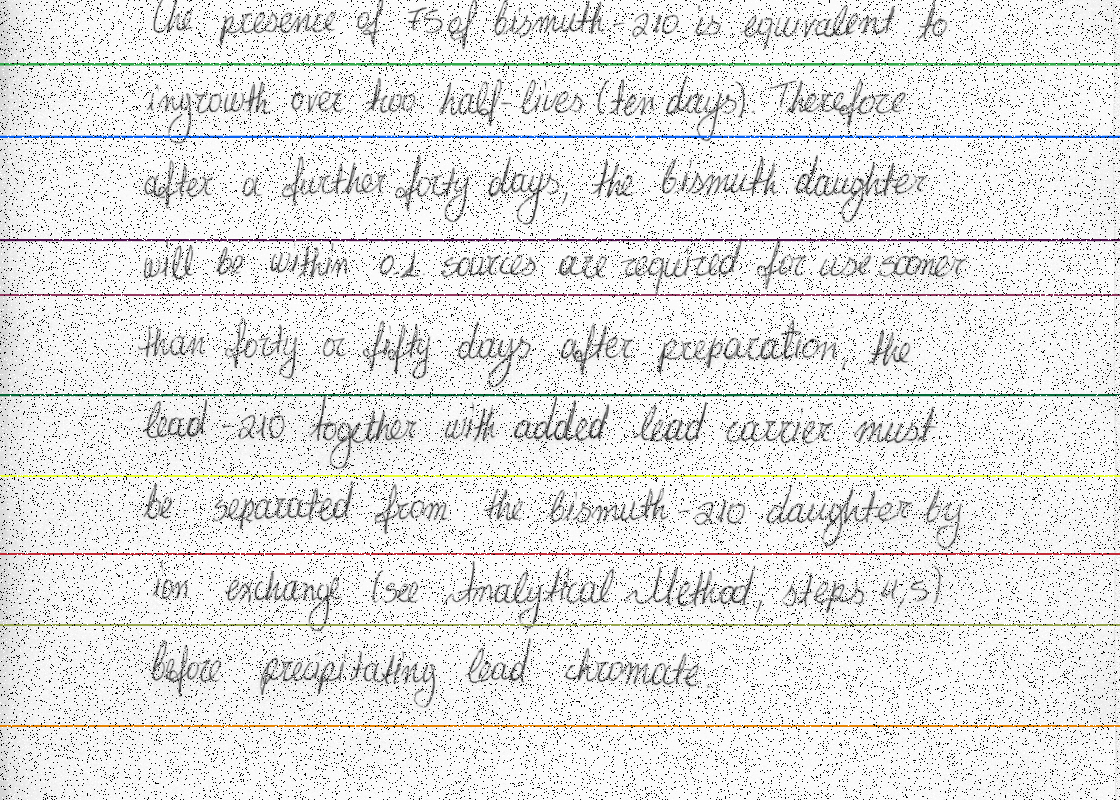 the presence of 75 of bismuth-210 is equivalent to
ingrowth over two half-lives (ten days) Therefore
after a further forty days, the bismuth daughter
will be within 0.1 sources are required for use sooner
than forty or fifty days after preparation, the
lead-210 together with added lead carrier must
be separated from the bismuth-210 daughter by
ion exchange (see Analytical Method, steps 4,5)
before precipitating lead chromate